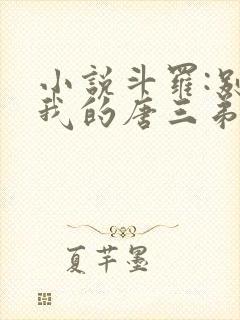 小說斗羅:別
我的唐三弟
夏芊墨